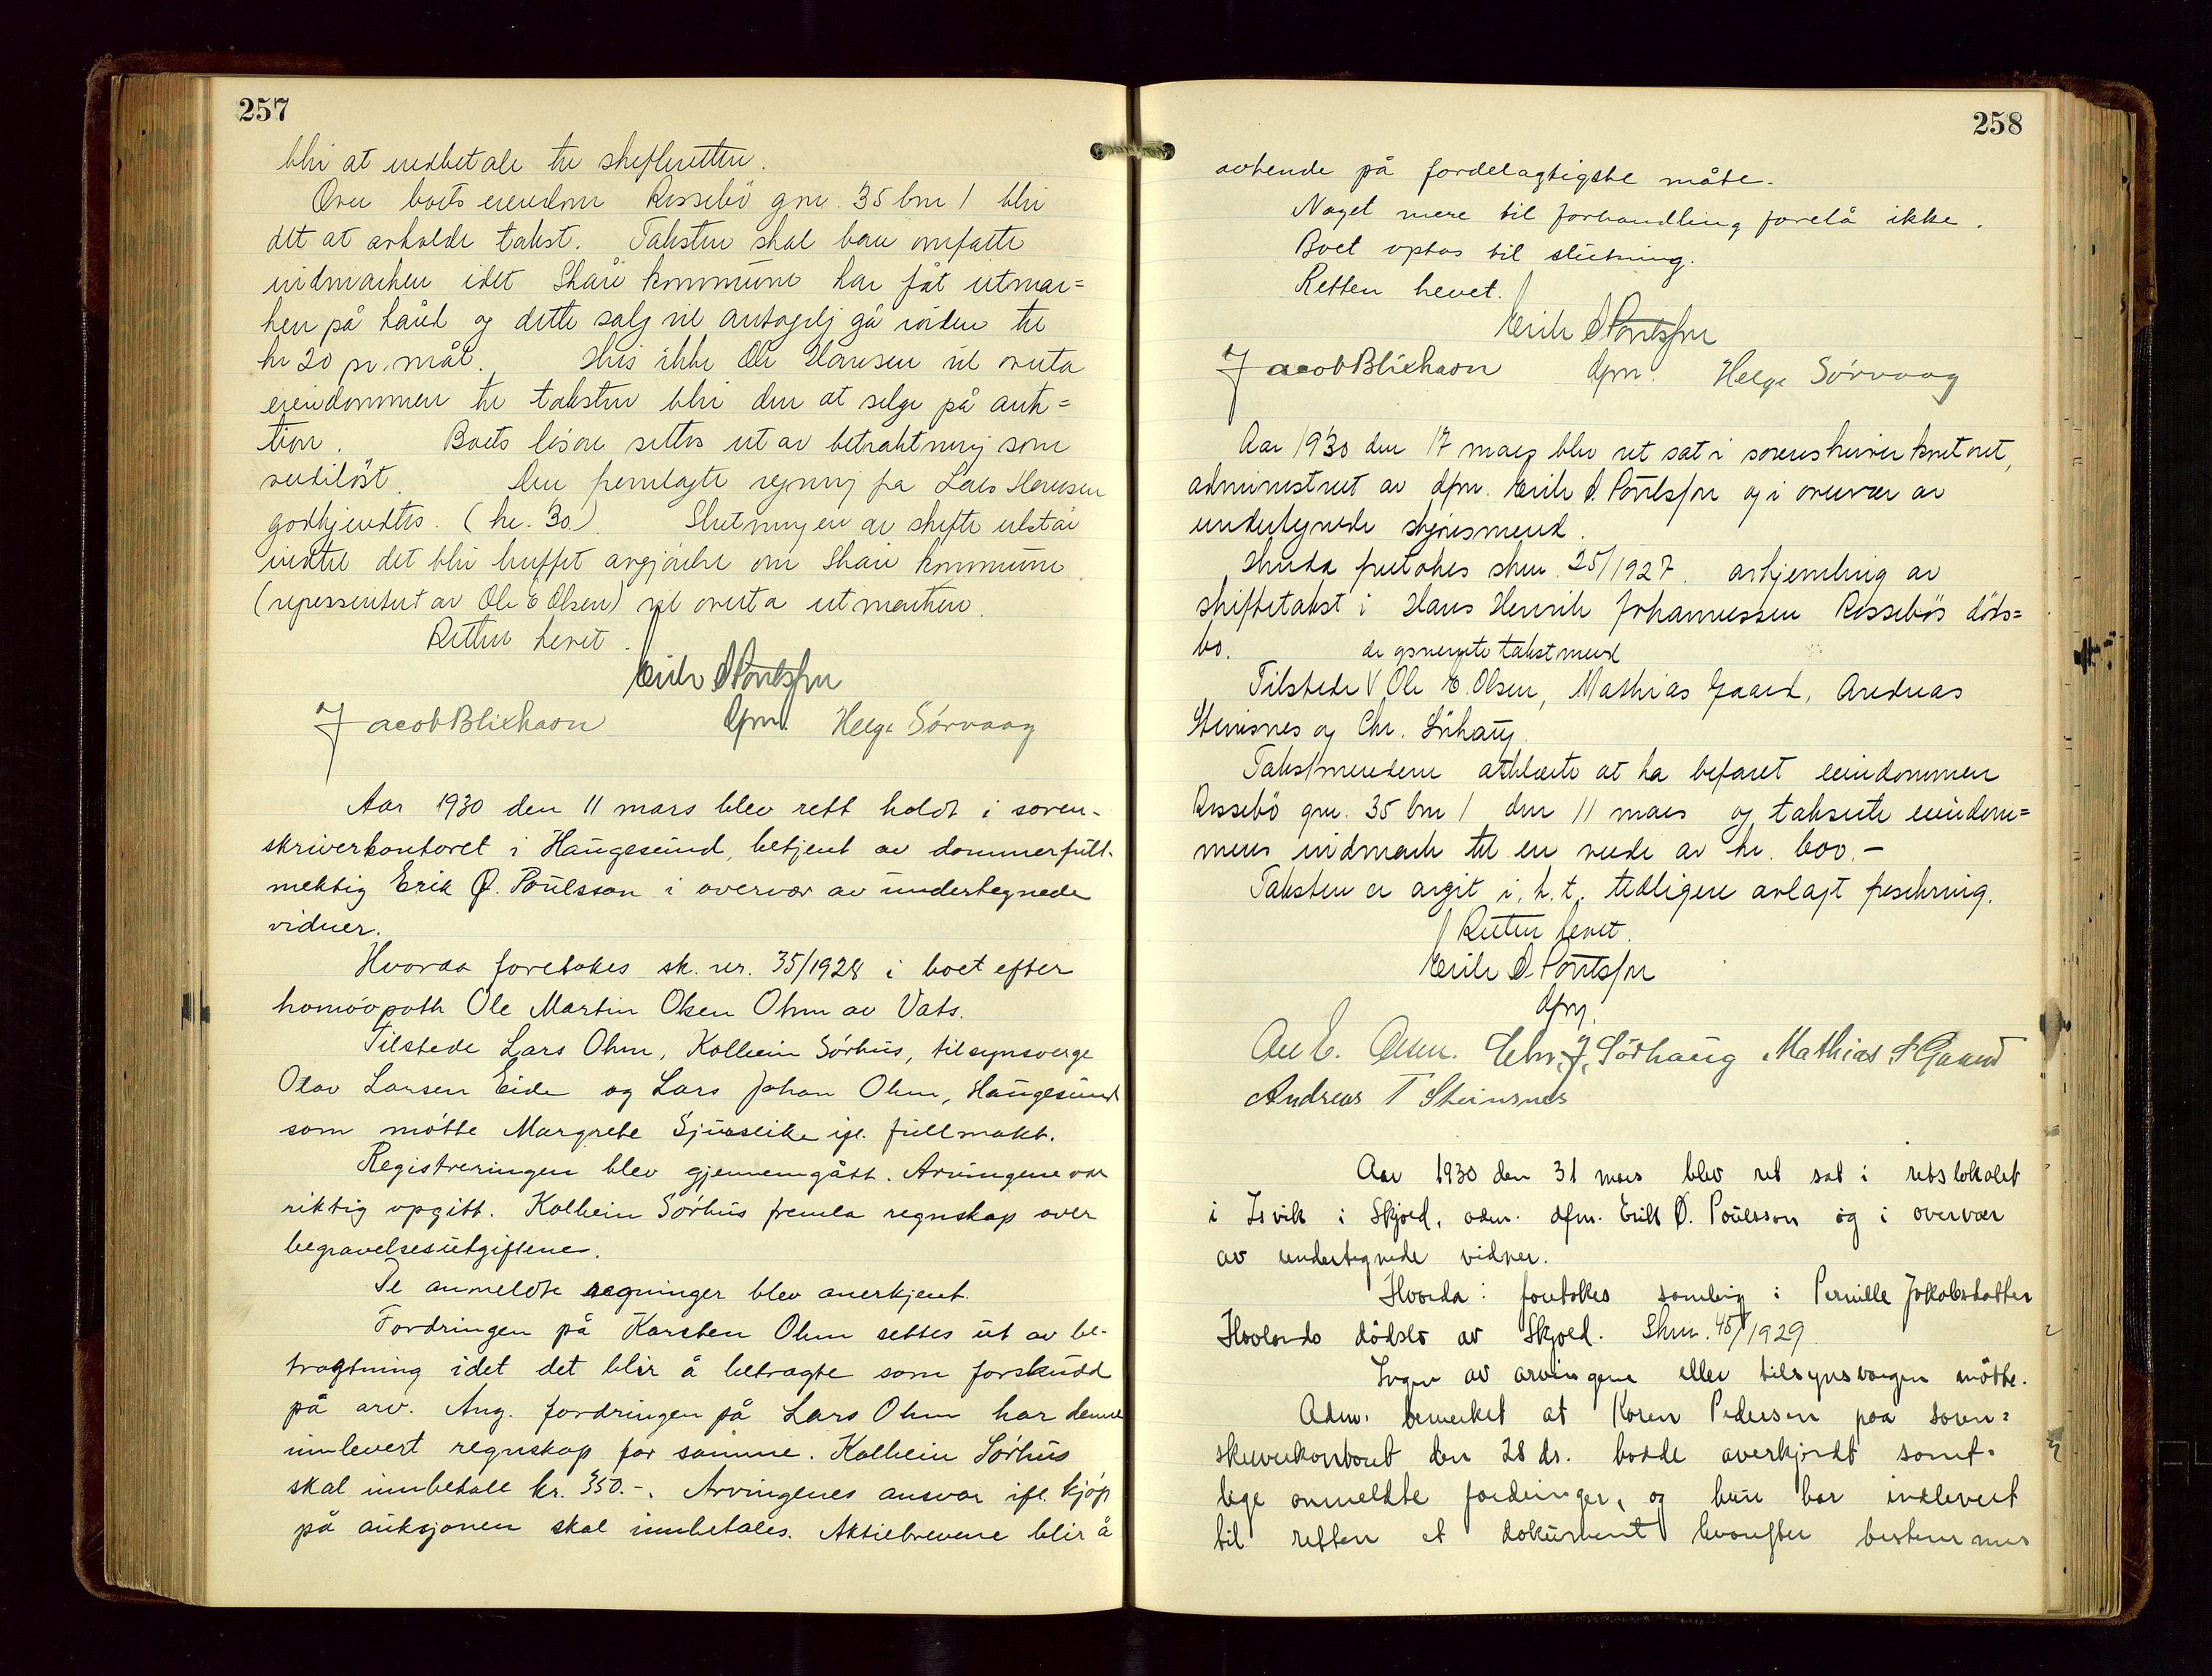 257
bli at indbetale til skifteretten.
Over boets eiendom Røssebö gnr. 35 bnr 1 blir
det at avholde takst. Taksten skal bare omfatte
indmarken idet Skåre kommune har fåt utmar=
ken på hånd og dette salg vil antagelig gå iorden til
kr 20 pr. mål. Hvis ikke Ole Hansen vil overta
eiendommen til taksten blir den at selge på auk=
tion. Boets lösöre settes ut av betraktning som
verdilöst. Den fremlagte regning fra Lars Hansen
godkjendtes. (kr. 30.) Slutningen av skiftet utstår
indtil det blir truffet avgjörelse om Skåre kommune
(representert av Ole E Olsen) vil overta utmarken.
Retten hevet.
Erik Ø Poulsson
Jacob Blikhavn dfm. Helge Sørvaag
Aar 1930 den 11 mars blev rett holdt i soren-
skriverkontoret i Haugesund, betjent av dommerfull-
mektig Erik Ø. Poulsson i overvær av undertegnede
vidner.
Hvorda foretokes sk. nr. 35/1928 i boet efter
homöopath Ole Martin Olsen Ohm av Vats.
Tilstede Lars Ohm, Kolbein Sørhus, tilsynsverge
Olav Larsen Eide og Lars Johan Ohm, Haugesund
som mötte Margrete Sjurseike ifl. fullmakt.
Registreringen blev gjennemgått. Arvingene var
riktig opgitt. Kolbein Sørhus fremla regnskap over
begravelsesutgiftene.
De anmeldte regninger blev anerkjent.
Fordringen på Karsten Ohm settes ut av be-
tragtning idet det blir å betragte som forskudd
på arv. Ang. fordringen på Lars Ohm har denne
innlevert regnskap for samme. Kolbein Sørhus
skal innbetale kr. 350.-. Arvingenes ansvar ifl. kjöp
på auksjonen skal innbetales. Aktiebrevene blir å
258
avhende på fordelagtigste måte.
Noget mere til forhandling forelå ikke.
Boet optas til slutning.
Retten hevet.
Erik Ø Poulsson
Jacob Blikhavn dfm. Helge Sørvaag
Aar 1930 den 17 mars blev ret sat i sorenskriverkontoret,
administrert av dfm. Erik Ø. Poulsson og i overvær av
undertegnede skjönsmend.
Hvorda foretokes sknr. 25/1927. avhjemling av
skiftetakst i Hans Henrik Johannessen Røssebös döds=
bo. de opnevnte takstmend
Tilstede V Ole E. Olsen, Mathias Gaard, Andreas
Steinsnes og Chr. Sörhaug.
Takstmendene erklærte at ha befaret eiendommen
Røssebö gnr. 35 bnr 1 den 11 mars og takserte eiendom=
mens indmark til en verdi av kr. 600.-
Taksten er avgit i. h. t. tidligere avlagt forsikring.
Retten hevet.
Erik Ø Poulsson
dfm.
Ole E. Olsen. Chr. J. Sørhaug Mathias S Gaard
Andreas T Steinsnes
Aar 1930 den 31 mars blev ret sat i retslokalet
i Isvik i Skjold, adm. dfm. Erik Ø. Poulsson og i overvær
av undertegnede vidner.
Hvorda: foretokes samling i Pernille Jakobsdatter
Hovlands dödsbo av Skjold. Sknr. 45/1929
Ingen av arvingene eller tilsynsvergen mötte.
Adm. bemerket at Karen Pedersen paa soren=
skriverkontoret den 28 ds. hadde anerkjendt samt=
lige anmeldte fordringer, og hun har indlevert
til retten et dokument hvorefter bestemmes